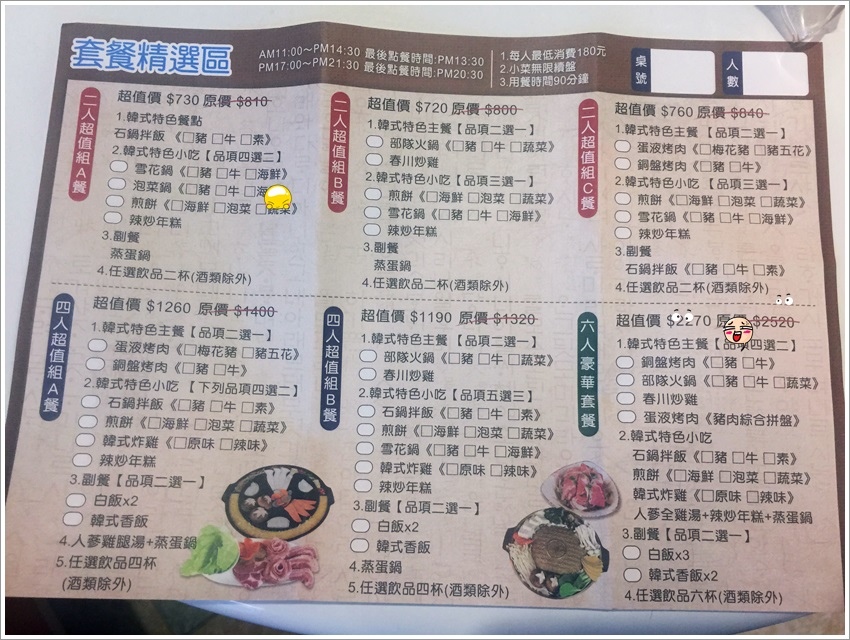 套餐精選區
AM11:00～PM14:30 最後點餐時間:PM13:30
PM17:00～PM21:30 最後點餐時間:PM20:30
1.每人最低消費180元
2.小菜無限續盤
3.用餐時間90分鐘
桌號
人數
二人超值組A餐
超值價 $730 原價 $810
1.韓式特色餐點
石鍋拌飯《□豬 □牛 □素》
2.韓式特色小吃【品項四選二】
雪花鍋《□豬 □牛 □海鮮》
泡菜鍋《□豬 □牛 □海
煎餅《□海鮮 □泡菜 □蔬菜》
辣炒年糕
3.副餐
蒸蛋鍋
4.任選飲品二杯(酒類除外)
二人超值組B餐
超值價 $720 原價 $800
1.韓式特色主餐【品項二選一】
部隊火鍋《□豬 □牛 □蔬菜》
春川炒雞
2.韓式特色小吃【品項三選一】
煎餅《□海鮮 □泡菜 □蔬菜》
雪花鍋《□豬 □牛 □海鮮》
辣炒年糕
3.副餐
蒸蛋鍋
4.任選飲品二杯(酒類除外)
二人超值組C餐
超值價 $760 原價 $840
1.韓式特色主餐【品項二選一】
蛋液烤肉《□梅花豬 □豬五花》
銅盤烤肉《□豬 □牛》
2.韓式特色小吃【品項三選一】
煎餅《□海鮮 □泡菜 □蔬菜》
雪花鍋《□豬 □牛 □海鮮》
辣炒年糕
3.副餐
石鍋拌飯《□豬 □牛 □素》
4.任選飲品二杯(酒類除外)
四人超值組A餐
超值價 $1260 原價 $1400
1.韓式特色主餐【品項二選一】
蛋液烤肉《□梅花豬 □豬五花》
銅盤烤肉《□豬 □牛》
2.韓式特色小吃【下列品項四選二】
石鍋拌飯《□豬 □牛 □素》
煎餅《□海鮮 □泡菜 □蔬菜》
韓式炸雞《□原味 □辣味》
辣炒年糕
3.副餐【品項二選一】
白飯x2
韓式香飯
4.人蔘雞腿湯+蒸蛋鍋
5.任選飲品四杯
(酒類除外)
四人超值組B餐
超值價 $1190 原價 $1320
1.韓式特色主餐【品項二選一】
部隊火鍋《□豬 □牛 □蔬菜》
春川炒雞
2.韓式特色小吃【品項五選三】
石鍋拌飯《□豬 □牛 □素》
煎餅《□海鮮 □泡菜 □蔬菜》
雪花鍋《□豬 □牛 □海鮮》
韓式炸雞《□原味 □辣味》
辣炒年糕
3.副餐【品項二選一】
白飯x2
韓式香飯
4.蒸蛋鍋
5.任選飲品四杯(酒類除外)
六人豪華套餐
超值價 $2270 原價 $2520
1.韓式特色主餐【品項四選二】
銅盤烤肉《□豬 □牛》
部隊火鍋《□豬 □牛 □蔬菜》
春川炒雞
蛋液烤肉《豬肉綜合拼盤》
2.韓式特色小吃
石鍋拌飯《□豬 □牛 □素》
煎餅《□海鮮 □泡菜 □蔬菜》
韓式炸雞《□原味 □辣味》
人蔘全雞湯+辣炒年糕+蒸蛋鍋
3.副餐【品項二選一】
白飯x3
韓式香飯x2
4.任選飲品六杯(酒類除外)